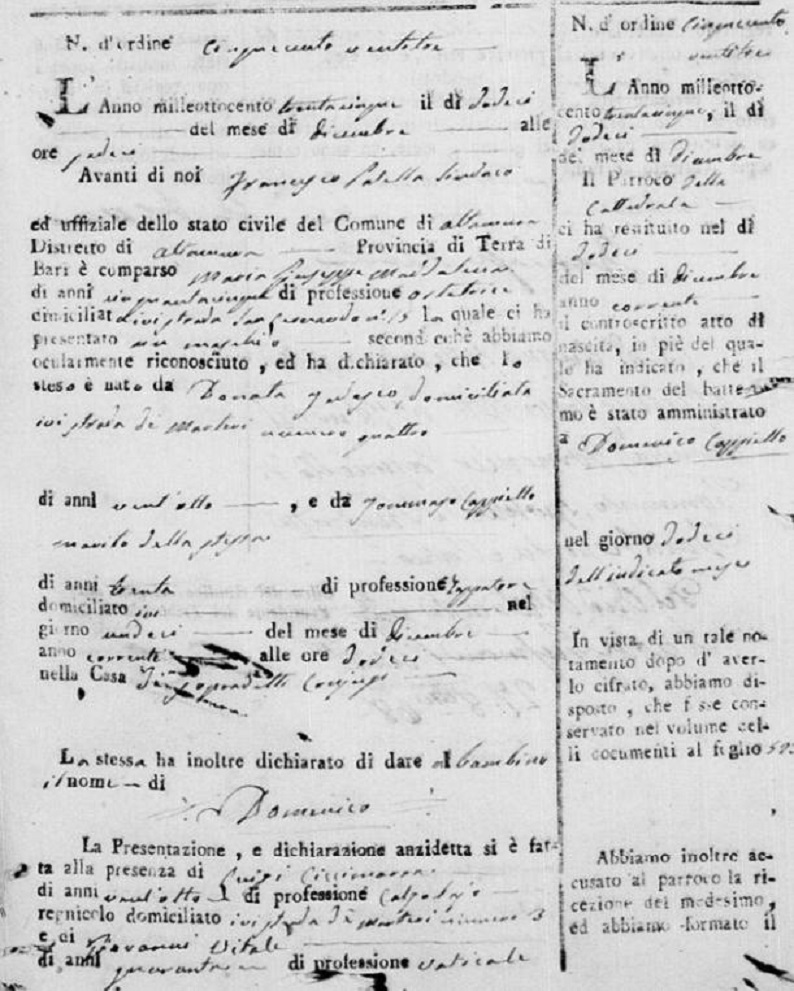 N. d'ordine cinquecento ventitre
L' Anno milleottocento trentacinque il dì dodeci
del mese di dicembre alle
ore sedeci
Avanti di noi Francesco Patella Sindaco
ed uffiziale dello stato civile del Comune di Altamura
Distretto di Altamura Provincia di Terra di
Bari è comparso Maria Giuseppe Maddalena
di anni cinquantacinque di professione ostetrice
domiciliata ivi strada San n.° 15 la quale ci ha
presentato un maschio secondochè abbiamo
ocularmente riconosciuto, ed ha dichiarato, che lo
stesso è nato da Donata domiciliata
ivi strada de Martiri numero quattro
di anni vent'otto, e da Tommaso Cappiello
marito della stessa
di anni trenta di professione Zappatore
domiciliato ivi nel
giorno undeci del mese di dicembre
anno corrente alle ore dodeci
nella Casa di sopradetti Conjugi
La stessa ha inoltre dichiarato di dare al bambino
il nome di
Domenico
La Presentazione, e dichiarazione anzidetta si è fat-
ta alla presenza di Luigi Ciccimarra
di anni vent'otto di professione Calzolajo
regnicolo domiciliato ivi strada de Martiri numero 3
e di Giovanni Vitale
di anni di professione vaticale
N. d' ordine cinquecento
ventitre
L' Anno milleotto-
cento trentacinque, il dì
dodeci
del mese di dicembre
Il Parroco della
Cattedrale
ci ha restituito nel dì
dodeci
del mese di dicembre
anno corrente
il controscritto atto di
nascita, in piè del qua-
le ha indicato, che il
Sacramento del battesi-
mo è stato amministrato
a Domenico Cappiello
nel giorno dodeci
dell'indicato mese
In vista di un tale no-
tamento dopo d' aver-
lo cifrato, abbiamo di-
sposto, che fosse con-
servato nel volume del-
li documenti al foglio 523
Abbiamo inoltre ac-
cusato al parroco la ri-
cezione del medesimo,
ed abbiamo formato il